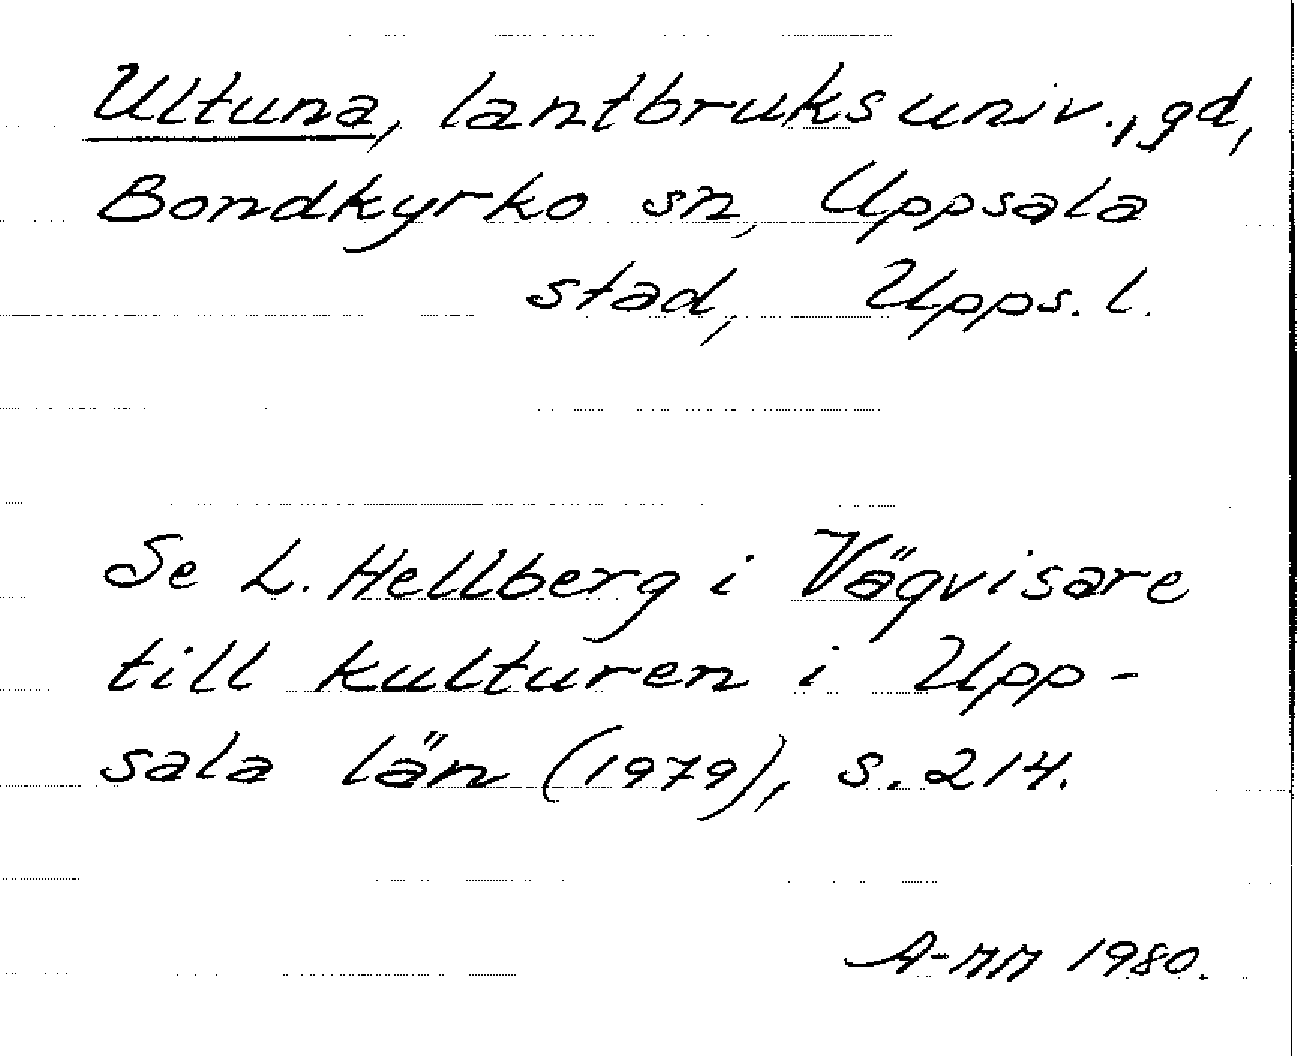 Ultuna, lantbruksuniv., gd,
Bondkyrko sn, Uppsala
stad, Upps. l.
Se L. Hellberg i Vägvisare
till kulturen i Upp-
sala län (1979), s. 214.
A-MM 1980.